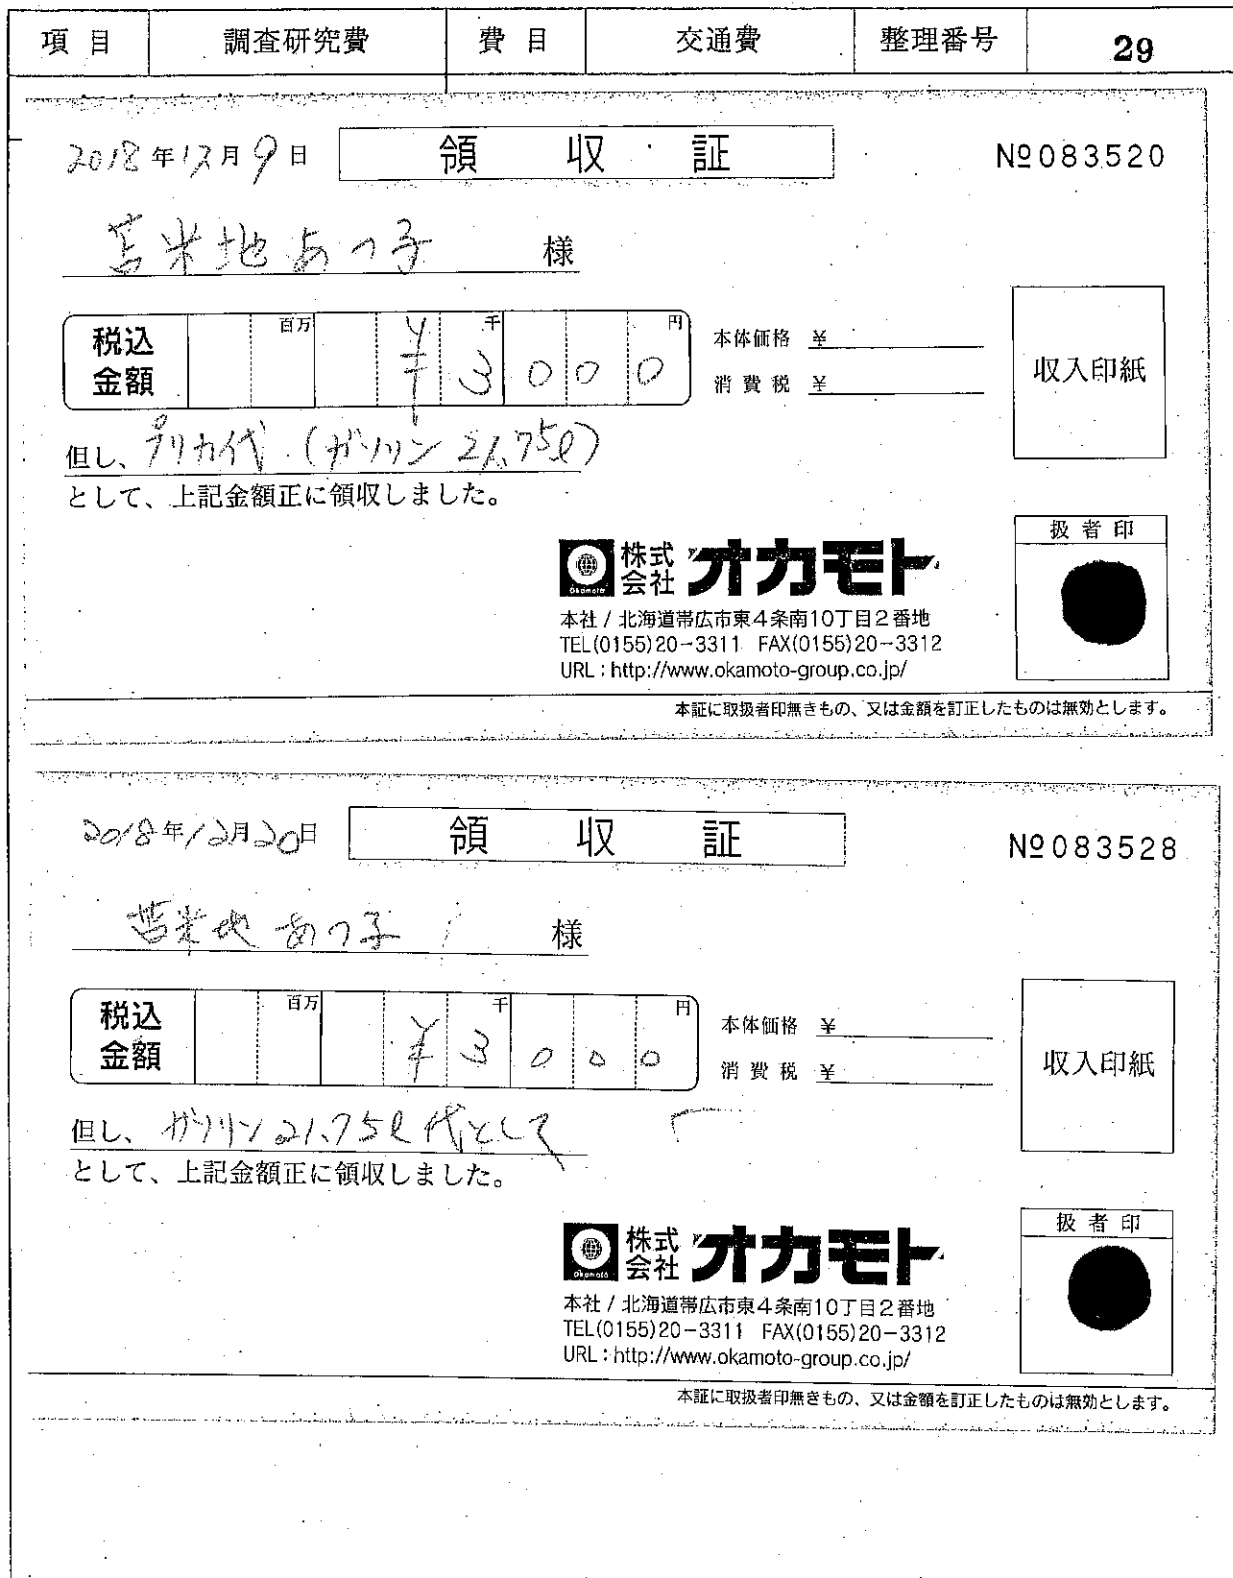 項 目 調査研究費 費 目 交通費 整理番号 29
2018年12月9日 領 収 証 №083520
苫米地あつ子 様
税込金額 百万 千 円 ¥3000
本体価格 ¥
消費税 ¥
収入印紙
但し、プリカ代(ガソリン 21.75ℓ)
として、上記金額正に領収しました。
扱者印
Okamoto 株式会社 オカモト
本社 / 北海道帯広市東4条南10丁目2番地
TEL(0155)20-3311 FAX(0155)20-3312
URL:http://www.okamoto-group.co.jp/
本証に取扱者印無きもの、又は金額を訂正したものは無効とします。
2018年12月20日 領 収 証 №083528
苫米地 あつ子 様
税込金額 百万 千 円 ¥3000
本体価格 ¥
消費税 ¥
収入印紙
但し、ガソリン21.75ℓ代として
として、上記金額正に領収しました。
扱者印
Okamoto 株式会社 オカモト
本社 / 北海道帯広市東4条南10丁目2番地
TEL(0155)20-3311 FAX(0155)20-3312
URL:http://www.okamoto-group.co.jp/
本証に取扱者印無きもの、又は金額を訂正したものは無効とします。